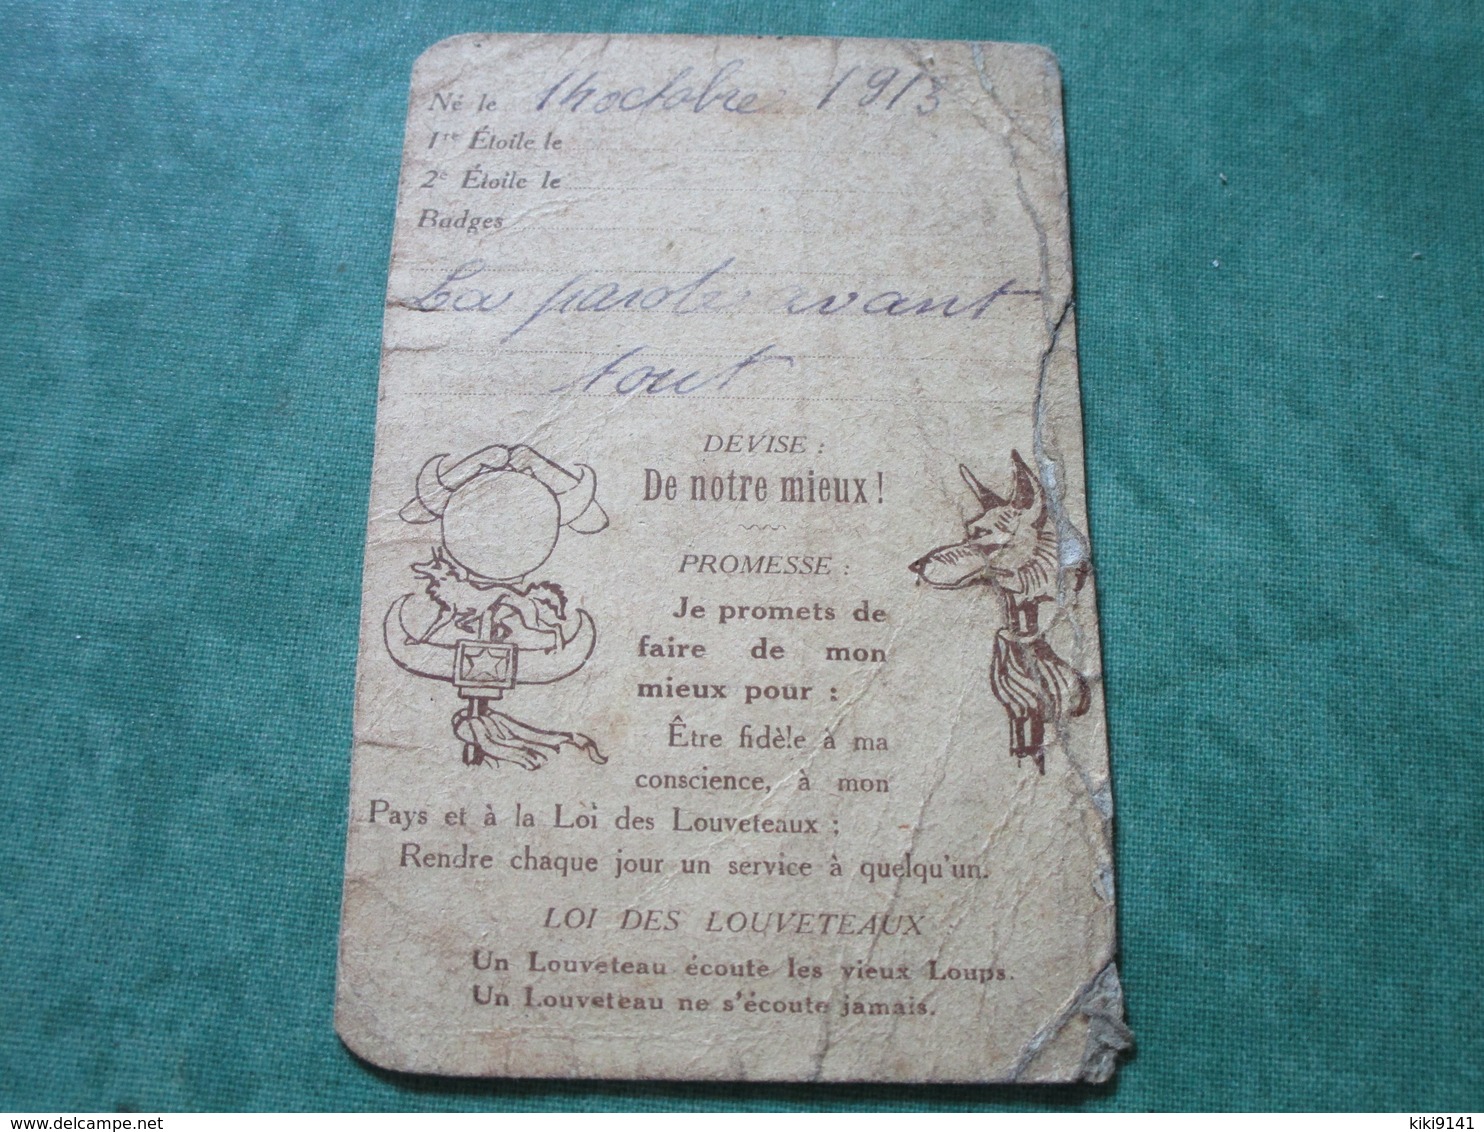 Né le 14 octobre 1913
1re Étoile le
2e Étoile le
Badges
La parole avant
tout
DEVISE :
De notre mieux !
PROMESSE :
Je promets de
faire de mon
mieux pour :
Être fidèle à ma
conscience, à mon
Pays et à la Loi des Louveteaux ;
Rendre chaque jour un service à quelqu'un.
LOI DES LOUVETEAUX
Un Louveteau écoute les vieux Loups.
Un Louveteau ne s'écoute jamais.
delcampe.net
kiki9141